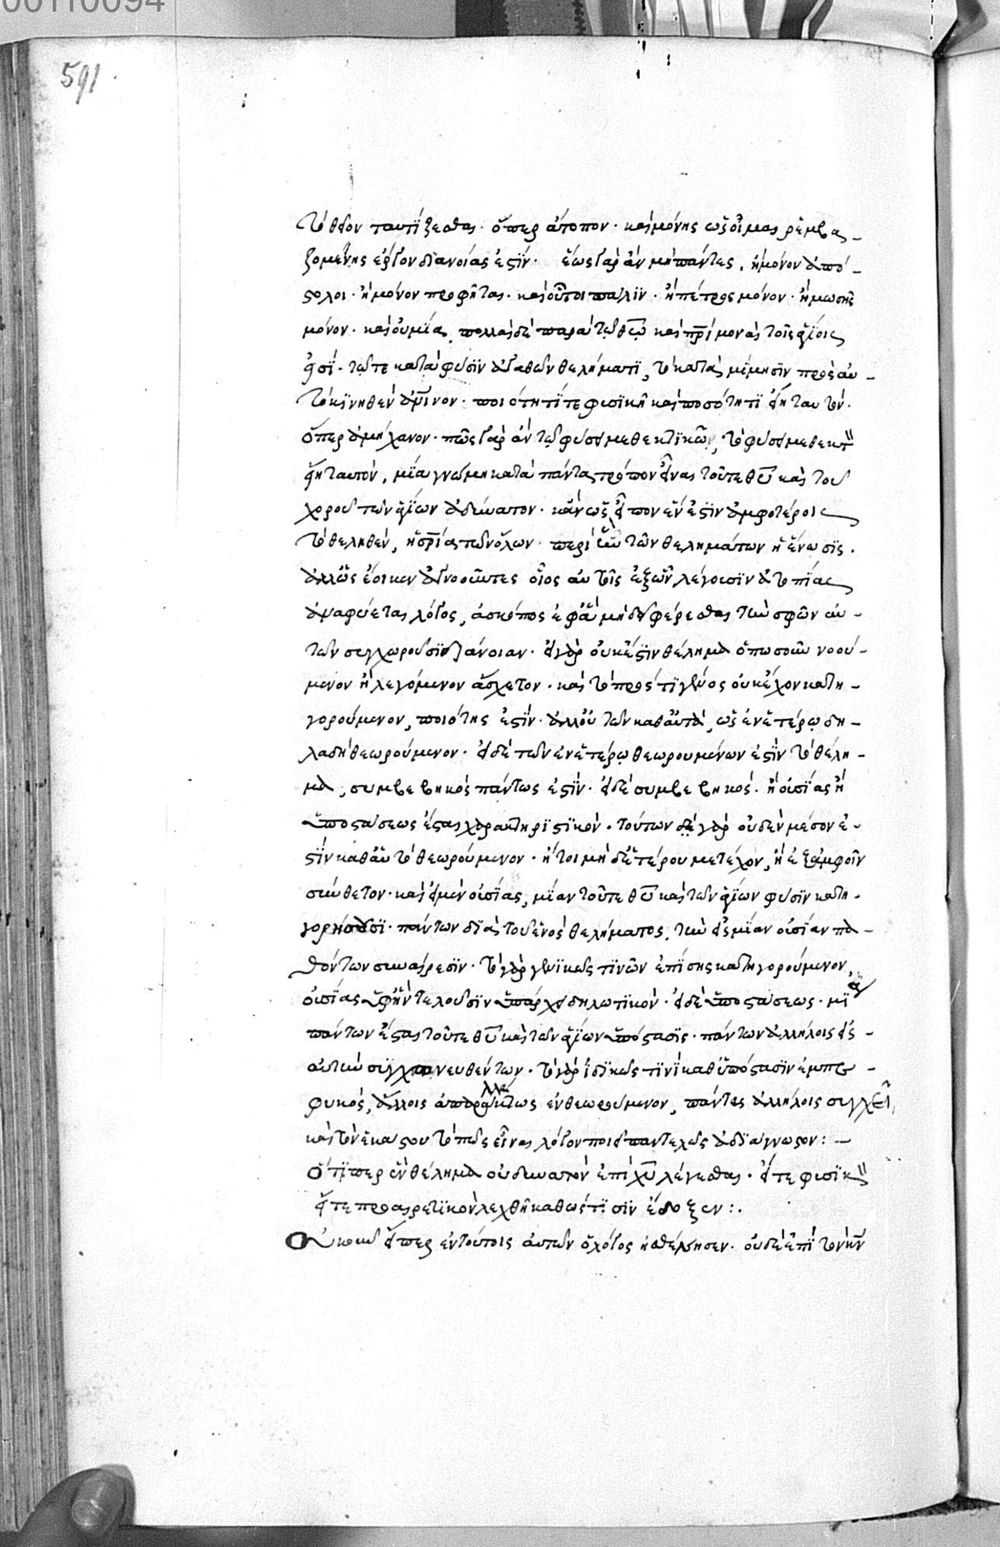 00110094
591
τὸ θεῖον ταυτίζεσθαι· ὅπερ ἄτοπον· καὶ μόνης ὡς οἶμαι ῥεμβα-
ζομένης ἔργον διανοίας ἐστίν· ἕως γὰρ ἂν μὴ πάντες, ἢ μόνον ἀπό-
στολοι· ἢ μόνον προφῆται· καὶ οὗτοι πάλιν· ἢ πέτρος μόνον· ἢ μωσῆς
μόνον· καὶ οὐ μία, πολλαὶ δὲ παρὰ τῷ θεῷ καὶ πατρὶ μοναὶ τοῖς ἁγίοις
εἰσί· τῷ τε κατὰ φύσιν ἀγαθῶν θελήματι, τὸ κατὰ μίμησιν πρὸς αὐ-
τὸ κινηθὲν ἄμεινον· ποιότητί τε φυσικῇ καὶ ποσότητι εἴη ταυτόν·
ὅπερ ἀμήχανον· πῶς γὰρ ἂν τῷ φύσει μεθεκτικῶν, τὸ φύσει μεθεκτὸν
εἴη ταυτόν, μία γνώμη κατὰ πάντα τρόπον εἶναι τοῦ τε θεοῦ καὶ τοῦ
χοροῦ τῶν ἁγίων ἀδύνατον· κἂν ὡς εἶπον ἕν ἐστιν ἀμφοτέροις
τὸ θεληθέν, ἡ σωτηρία τῶν ὅλων· περὶ ἣν τῶν θελημάτων ἡ ἕνωσις.
ἀλλ' ὡς ἔοικεν ἀγνοοῦντες οἷος αὐτοῖς ἐξ ὧν λέγουσιν ἀτοπίας
ἀναφύεται λόγος, ἀσκόπως ἐφ' ἃ μὴ δεῖ φέρεσθαι τὴν σφῶν αὐ-
τῶν συγχωροῦσι διάνοιαν· εἰ γὰρ οὐκ ἔστιν θέλημα ὁπωσοῦν νοού-
μενον ἢ λεγόμενον ἄσχετον· καὶ τὸ πρός τι γένος οὐκ ἔχον κατη-
γορούμενον, ποιότης ἐστίν· ἀλλ' οὐ τῶν καθ' αὑτά, ὡς ἐν ἑτέρῳ δη-
λαδὴ θεωρούμενον· εἰ δὲ τῶν ἐν ἑτέρῳ θεωρουμένων ἐστὶν τὸ θέλη-
μα, συμβεβηκὸς πάντως ἐστίν· εἰ δὲ συμβεβηκός· ἢ οὐσίας ἢ
ὑποστάσεως ἔσται χαρακτηριστικόν· τούτων γὰρ οὐδὲν μέσον ἐ-
στὶν καθ' αὑτὸ θεωρούμενον· ἤτοι μηδετέρου μετέχον, ἢ ἐξ ἀμφοῖν
σύνθετον· καὶ εἰ μὲν οὐσίας, μίαν τοῦ τε θεοῦ καὶ τῶν ἁγίων φύσιν κατη-
γορήσουσι· πάντων διὰ τοῦ ἑνὸς θελήματος, τὴν εἰς μίαν οὐσίαν πα-
θόντων συναίρεσιν· τὸ γὰρ γενικῶς τινῶν ἐπίσης κατηγορούμενον,
οὐσίας ὑφ' ἣν τελοῦσιν ὑπάρχει δηλωτικόν· εἰ δὲ ὑποστάσεως· μία
πάντων ἔσται τοῦ τε θεοῦ καὶ τῶν ἁγίων ὑπόστασις· πάντων ἀλλήλοις εἰς
αὐτὴν συγχωνευθέντων· τὸ γὰρ ἰδικῶς τινὶ καθ' ὑπόστασιν ἐμπε-
φυκός, ἄλλοις ἀπαραλλάκτως ἐνθεωρούμενον, πάντας ἀλλήλοις συγχεῖ,
καὶ τὸν ἑκάστου τὸ πῶς εἶναι λόγον ποιεῖ παντελῶς ἀδιάγνωστον:-
Ὅτιπερ ἓν θέλημα οὐ δυνατὸν ἐπὶ χριστοῦ λέγεσθαι· εἴτε φυσικὸν
εἴτε προαιρετικὸν λεχθῇ καθώς τισιν ἔδοξεν:.
Οὐκοῦν ὥσπερ ἐν τούτοις αὐτῶν ὁ λόγος ἠσθένησεν· οὐδὲ ἐπὶ τὸν ἡμῶν